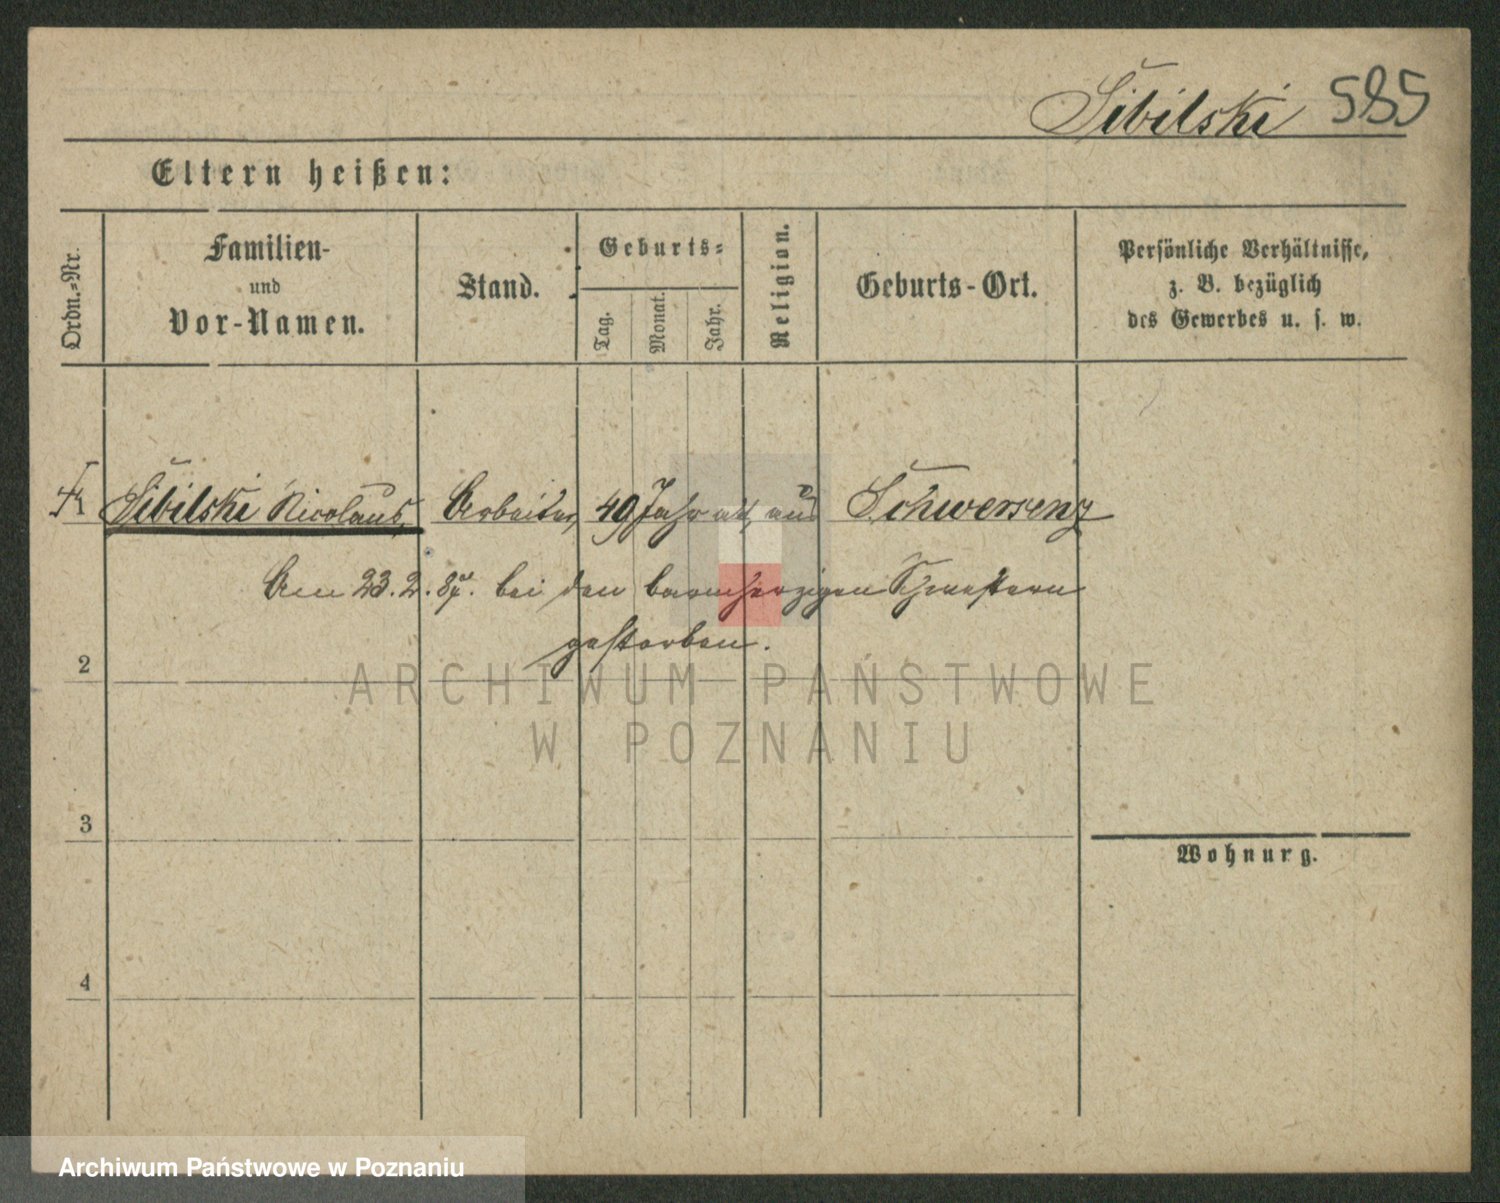 Sibilski 585
Eltern heißen:
Ordn.=Nr.
Familien-
und
Vor-Namen.
Stand.
Geburts=
Tag.
Monat.
Jahr.
Religion.
Geburts-Ort.
Persönliche Verhältnisse,
z. B. bezüglich
des Gewerbes u. s. w.
Sibilski Nicolaus, Arbeiter, 49 Jahr alt, aus Schwersenz
Am 23. 2. bei den barmherzigen Schwestern
gestorben.
2
3
Wohnung.
4
ARCHIWUM PAŃSTWOWE
W POZNANIU
Archiwum Państwowe w Poznaniu